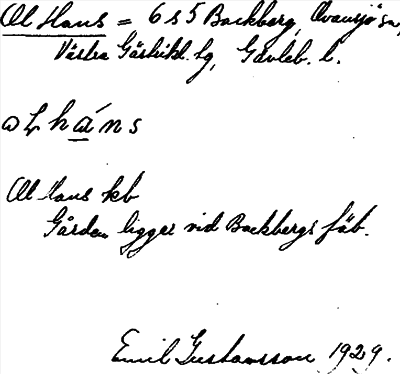 Ol Hans = 6 s 5 Backberg, Ovansjö sn,
Västra Gästrikl. tg, Gävleb. l.
ωLháns
Ol Hans kb
Gården ligger vid Backbergs fäb.
Emil Gustavsson 1929.